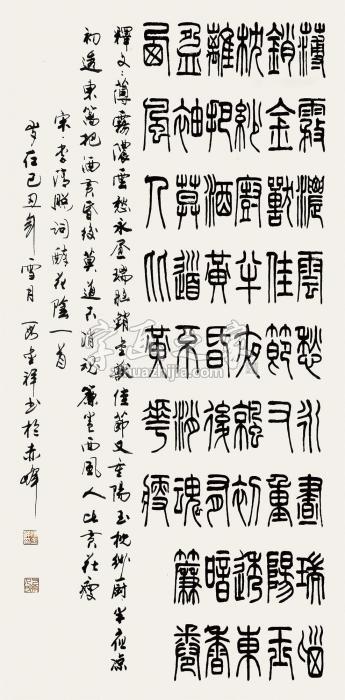 薄霧濃雲愁永晝瑞腦
銷金獸佳節又重陽玉
枕紗廚半夜涼初透東
離把酒黃昏後有暗香
盈袖莫道不消魂簾卷
西風人比黃花瘦
釋文：薄霧濃雲愁永晝瑞腦銷金獸佳節又重陽玉枕紗廚半夜涼
初透東籬把酒黃昏後莫道不消魂簾卷西風人比黃花瘦
宋·李清照詞醉花陰一首
歲在己丑年雪月金祥書於赤峰
字画之家